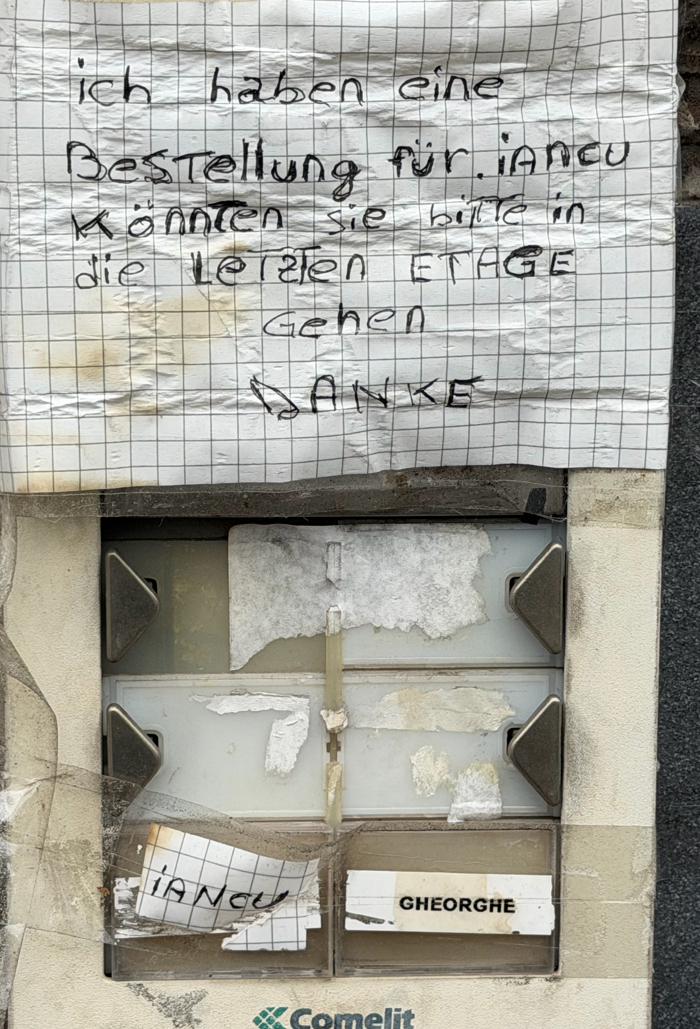 ich haben eine
BesTellung für.iANCU
Könnten sie bitte in
die LeTZTen ETAGE
Gehen
DANKE
iANCU
GHEORGHE
Comelit